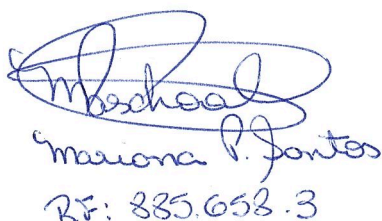 Paschoal
Mariana P. Santos
RF: 885.658.3